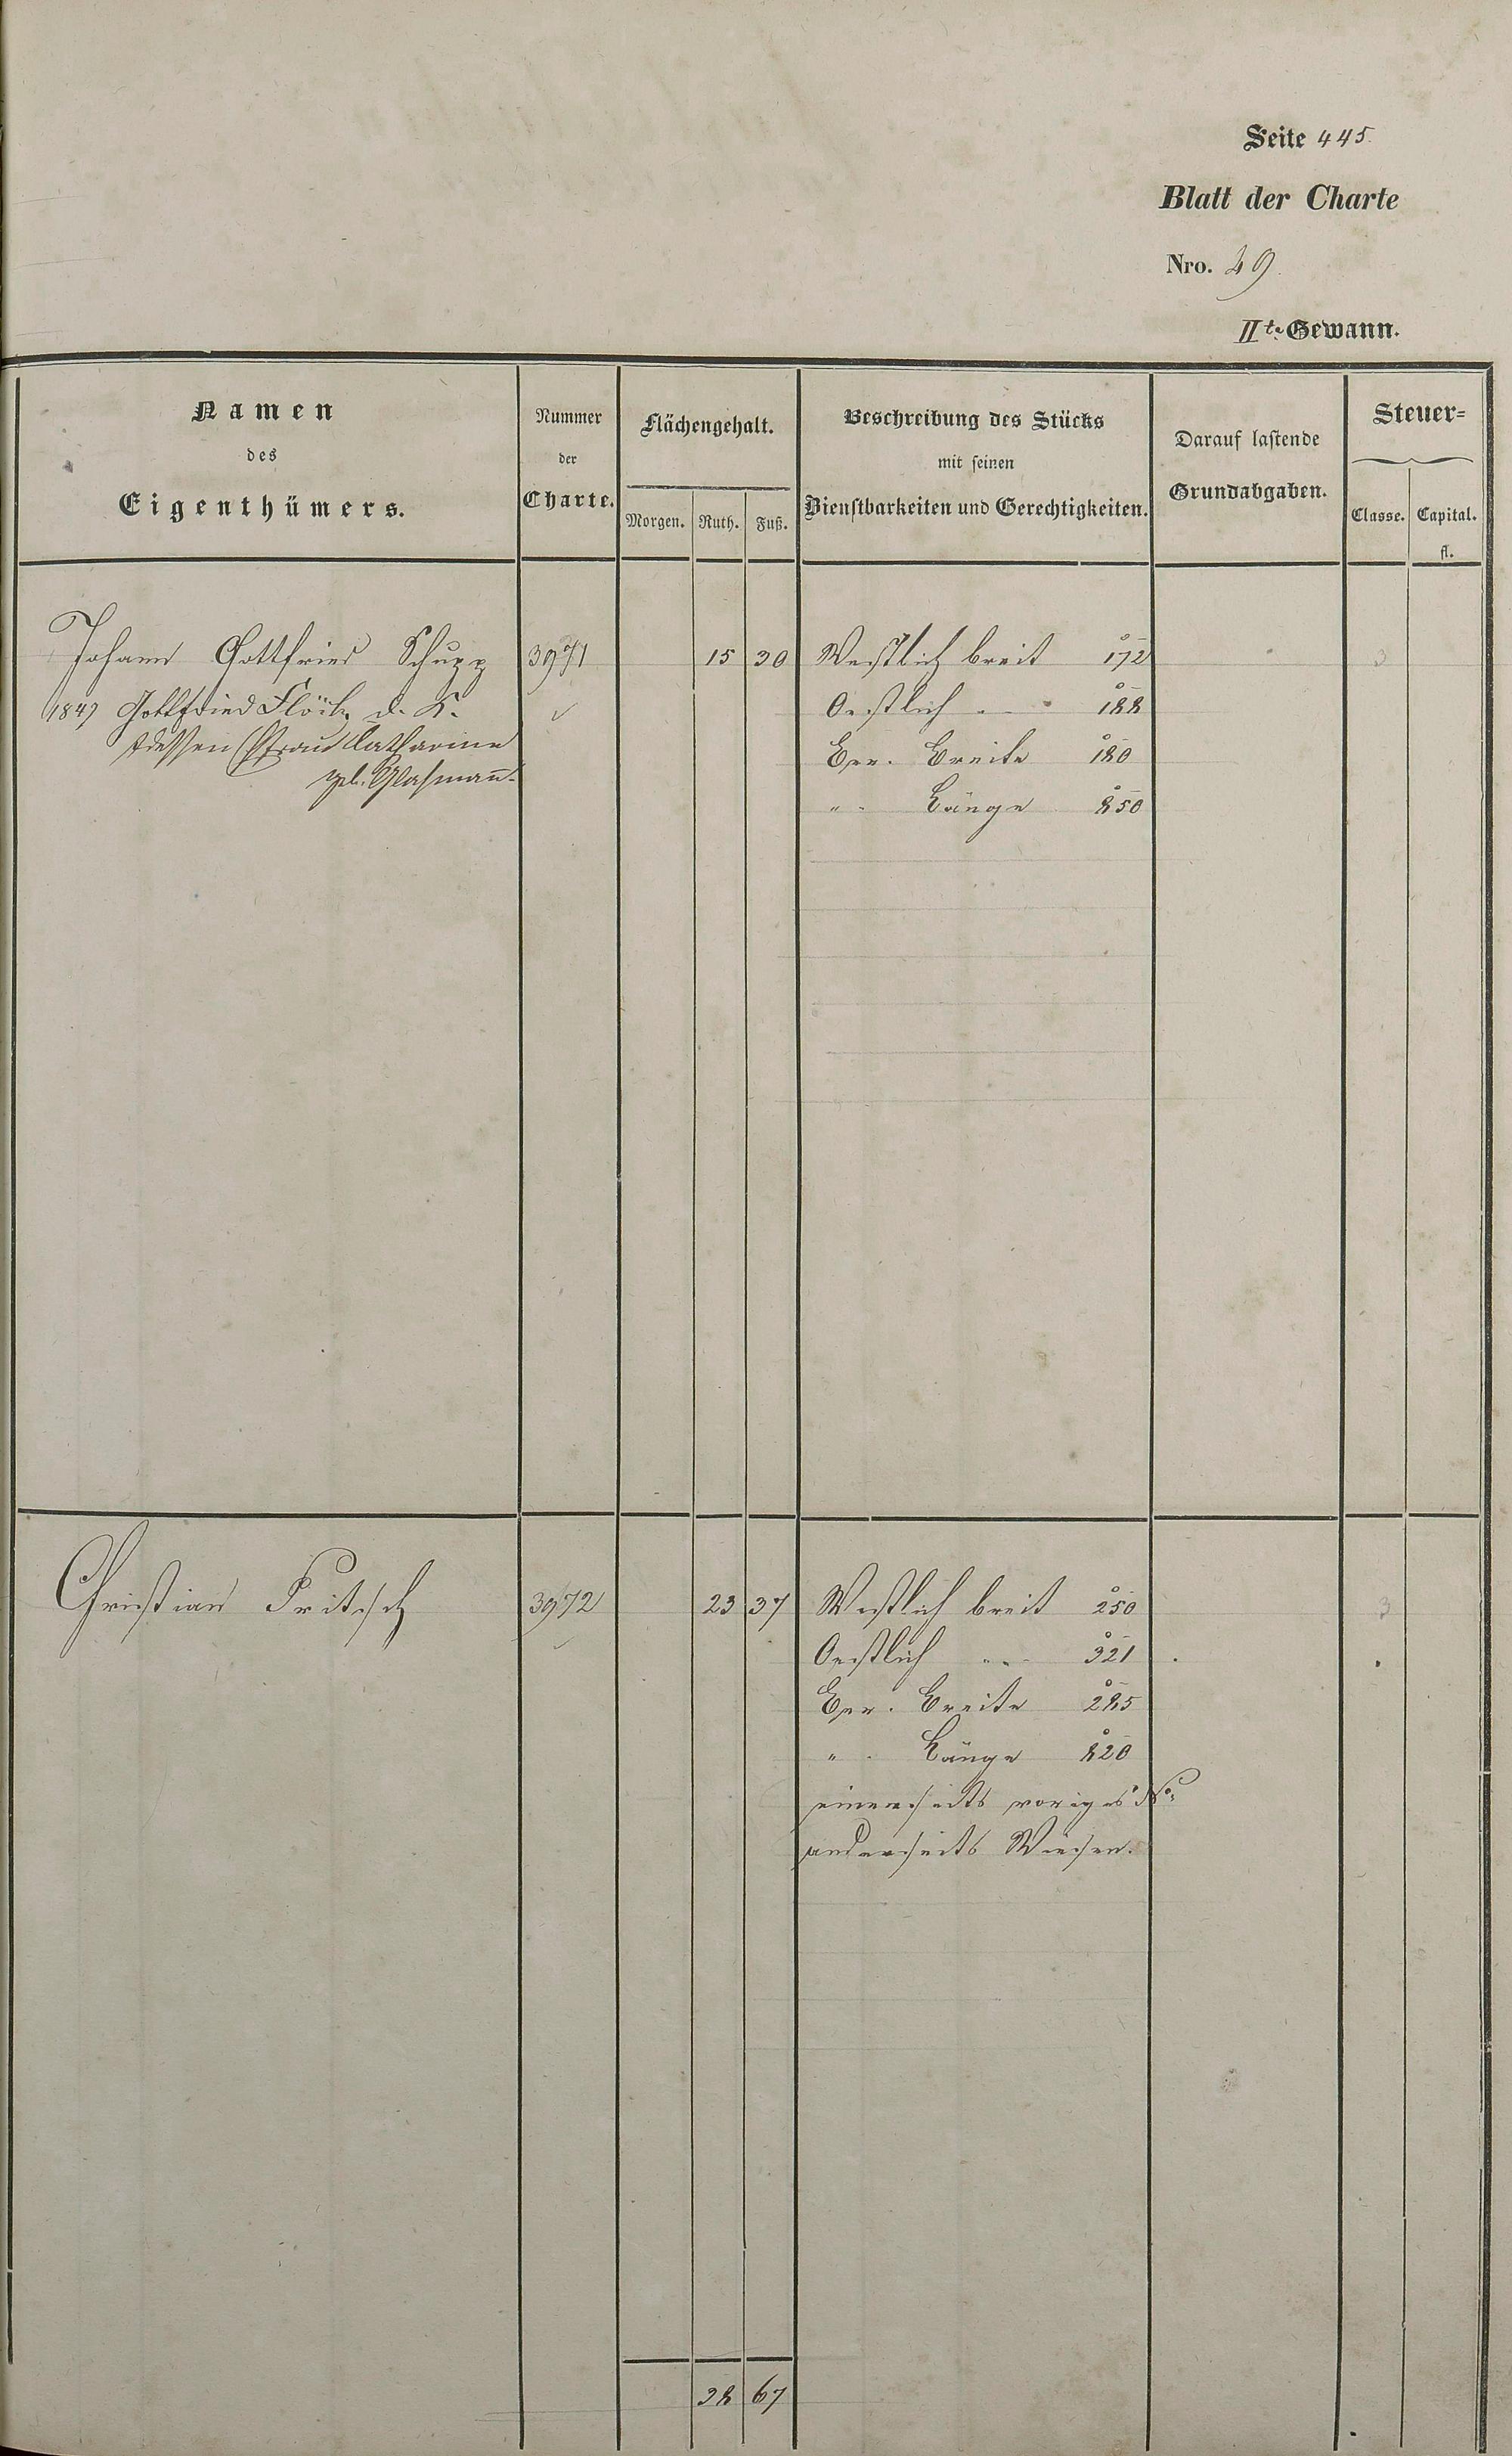 Seite 445.
Blatt der Charte
Nro. 49.
IIte Gewann.
Namen des Eigenthümers.
Nummer der Charte.
Flächengehalt.
Morgen. Ruth. Fuß.
Beschreibung des Stücks mit seinen Dienstbarkeiten und Gerechtigkeiten.
Darauf lastende Grundabgaben.
Steuer=
Classe. Capital. fl.
Johann Gottfried Schupp 3971 15 30 Westlich breit 172 3
1847 Gottfried d. K. Oestlich " 188
& dessen Ehefrau Catharine Ger. Breite 180
geb. Glasmann.
" Länge 850
Christian Fritsch 3972 23 37 Westlich breit 250 3
Oestlich " 321
Ger. Breite 285
" Länge 820
einerseits voriges No.
anderseits Wiesen.
38 67